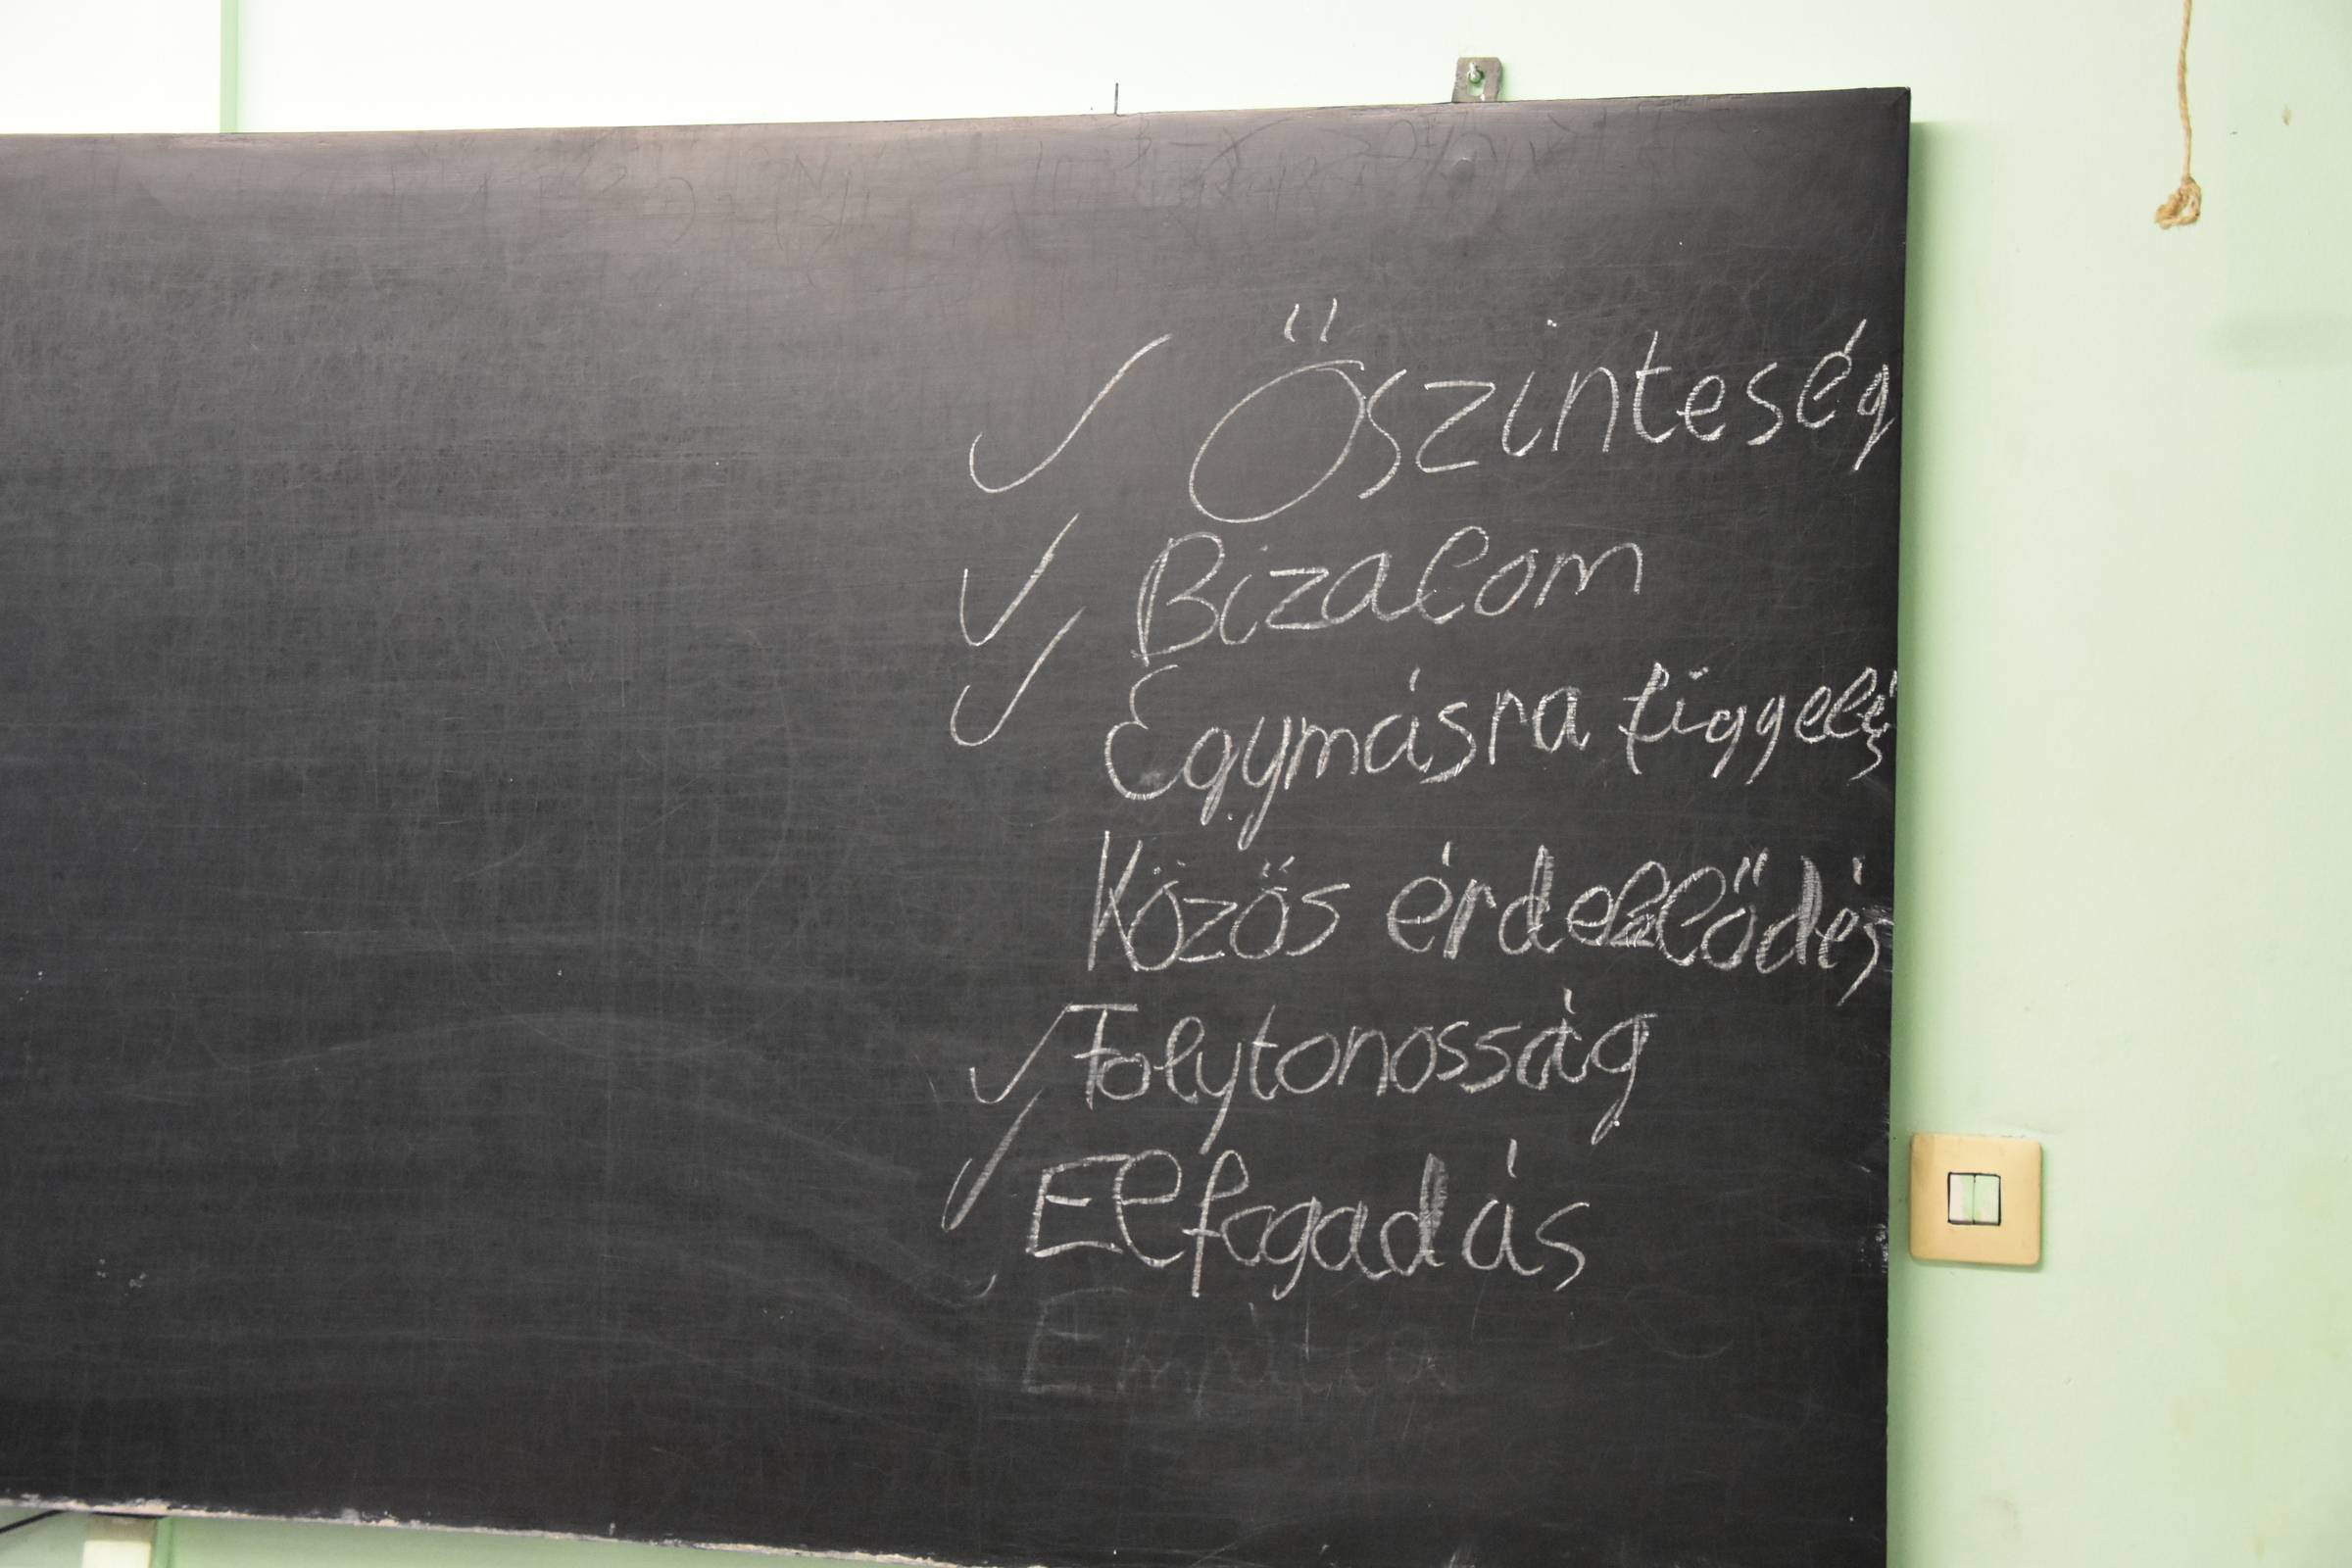 ✓ Őszinteség
✓ Bizalom
✓ Egymásra figgelés
Közős érdeklődés
✓ Folytonosság
✓ Elfogadás